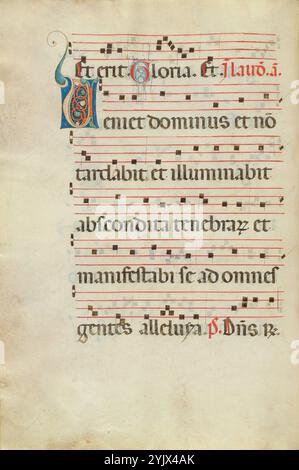 Et erit. Gloria. Et. In laud. a.
Veniet dominus et nō
tardabit et illuminabit
abscondita tenebraꝝ et
manifestabi se ad omnes
gentes alleluya. p. Dñs. ℟.
alamy
Image ID: 2YJX4AK
www.alamy.com